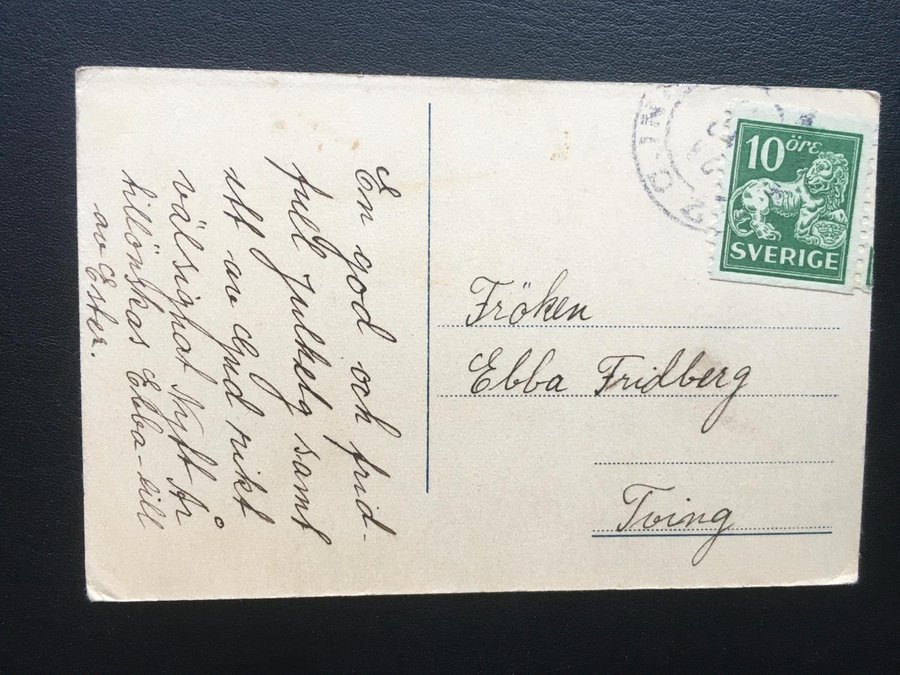 En god och frid-
full julhelg samt
ett av Gud rikt
välsignat Nytt År
tillönskas Ebba-lill
av Ester.
10 öre
SVERIGE
Fröken
Ebba Fridberg
Tving